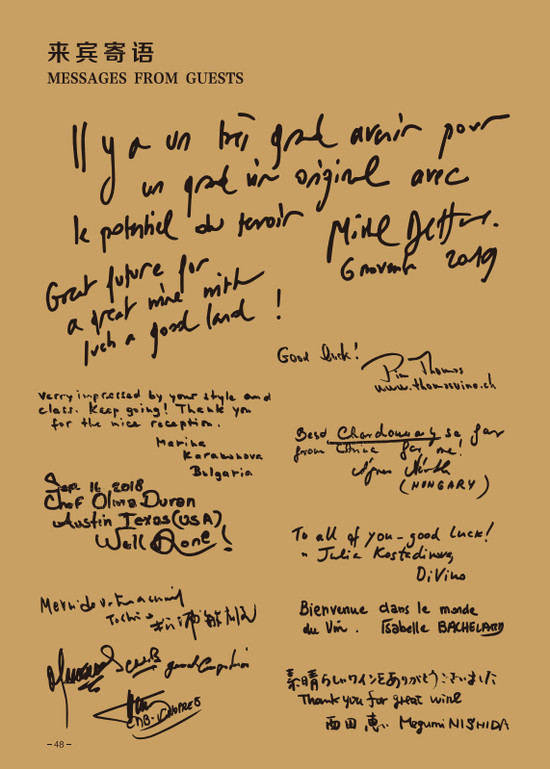 来宾寄语
MESSAGES FROM GUESTS
Il y a un très grand avenir pour
un grand vin original avec
le potentiel du terroir
6 novembre 2019
Great future for
a great wine with
such a good land !
Good luck!
Pim Thomas
www.thomasvino.ch
very impressed by your style and
class. Keep going! Thank you
for the nice reception.
Marina
Bulgaria
Best Chardonnay so far
from China for me!
(HUNGARY)
Sept 16 2018
Chef Olivia Duran
Austin Texas (USA)
Well Done!
To all of you - good luck!
Julia Kostadinova
DiVino
Bienvenue dans le monde
du Vin. Isabelle BACHELARD
素晴らしいワインをありがとうございました
Thank you for great wine
西田 恵 Megumi NISHIDA
– 48 –